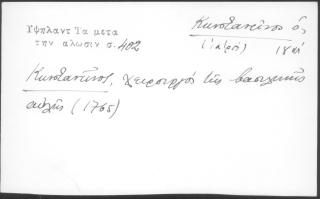 Υψηλαντ Τα μετα
την αλωσιν σ. 402
Κωνσταντῖνος ὁ,
(ἰατρὸς)
Κωνσταντῖνος, χειρουργὸς τῆς βασιλικῆς
αὐλῆς (1765)